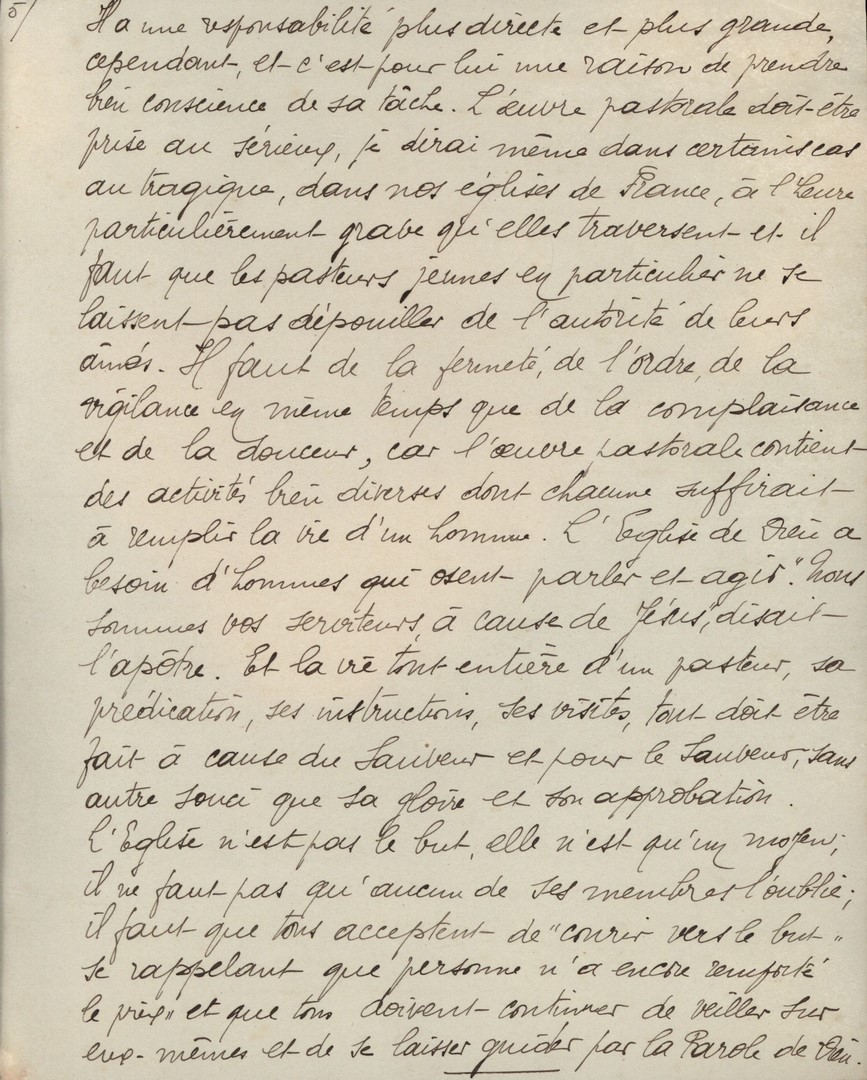 5/
Il a une responsabilité plus directe et plus grande,
cependant, et c'est pour lui une raison de prendre
bien conscience de sa tâche. L'œuvre pastorale doit être
prise au sérieux, je dirai même dans certains cas
au tragique, dans nos églises de France, à l'heure
particulièrement grave qu'elles traversent et il
faut que les pasteurs jeunes en particulier ne se
laissent pas dépouiller de l'autorité de leurs
aînés. Il faut de la fermeté, de l'ordre, de la
vigilance en même temps que de la complaisance
et de la douceur, car l'œuvre pastorale contient
des activités bien diverses dont chacune suffirait
à remplir la vie d'un homme. L'Eglise de Dieu a
besoin d'hommes qui osent parler et agir. "Nous
sommes vos serviteurs, à cause de Jésus", disait
l'apôtre. Et la vie tout entière d'un pasteur, sa
prédication, ses instructions, ses visites, tout doit être
fait à cause du Sauveur et pour le Sauveur, sans
autre souci que sa gloire et son approbation.
L'Eglise n'est pas le but, elle n'est qu'un moyen;
il ne faut pas qu'aucun de ses membres l'oublie;
il faut que tous acceptent de "courir vers le but"
se rappelant que personne n'a encore remporté
le prix" et que tous doivent continuer de veiller sur
eux-mêmes et de se laisser guider par la Parole de Dieu.